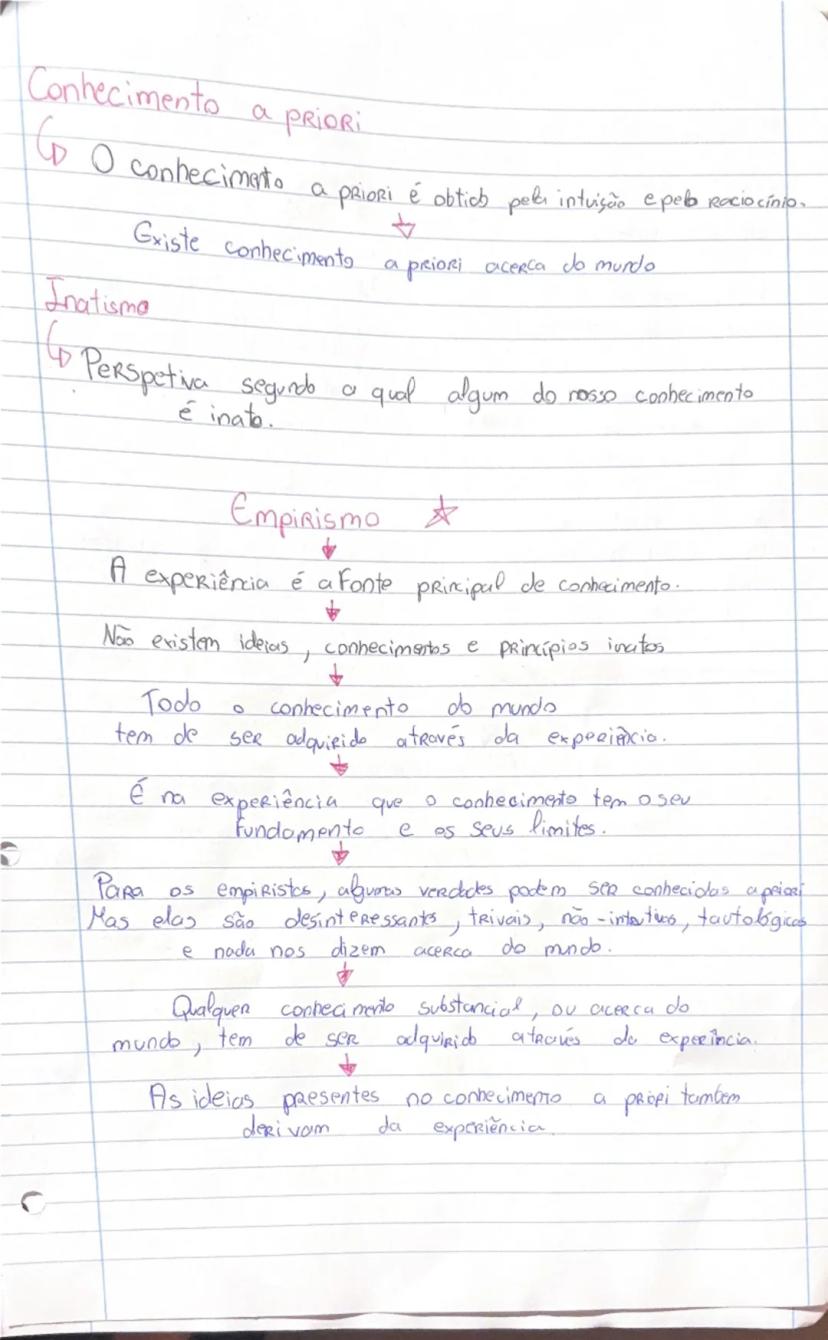 Conhecimento a PRIORI
O conhecimento a PRIORI é obtido pela intuição e pelo Raciocínio.
Existe conhecimento a PRIORI acerca do mundo
Inatismo
PERSpetiva segundo a qual algum do nosso conhecimento
é inato.
Empirismo
A experiência é a Fonte principal de conhecimento.
Não existem ideias, conhecimentos e princípios inatos
Todo o conhecimento do mundo
tem de ser adquirido através da experiência.
É na experiência que o conhecimento tem o seu
fundamento e os seus limites.
Para os empiristas, algumas verdades podem ser conhecidas a priori
Mas elas são desinteressants, trivais, não-, tautológicas
e nada nos dizem acerca do mundo.
Qualquer conhecimento substancial, ou acerca do
mundo, tem de ser adquirido através da experîncia.
As ideias presentes no conhecimento a priopi tambem
derivam da experiência.